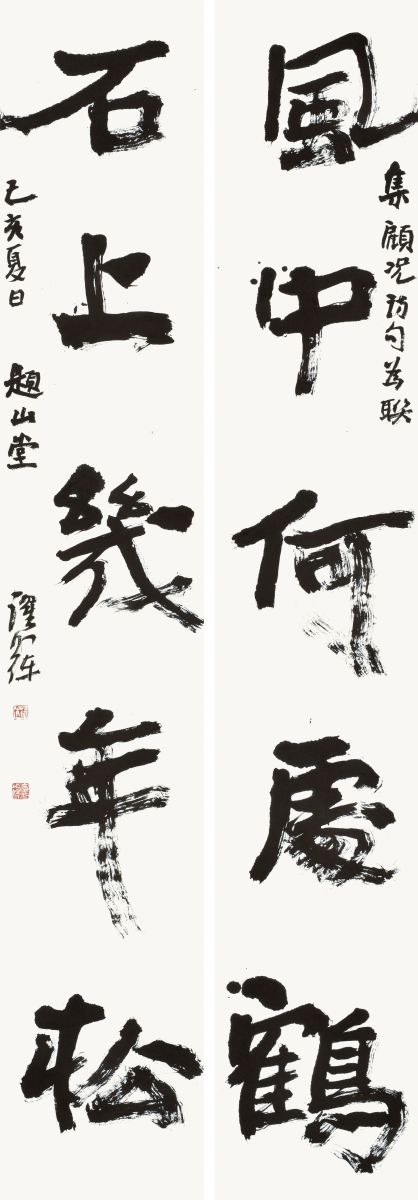 風中何處鶴
集顧况詩句為聯
石上幾年松
己亥夏日 題山堂